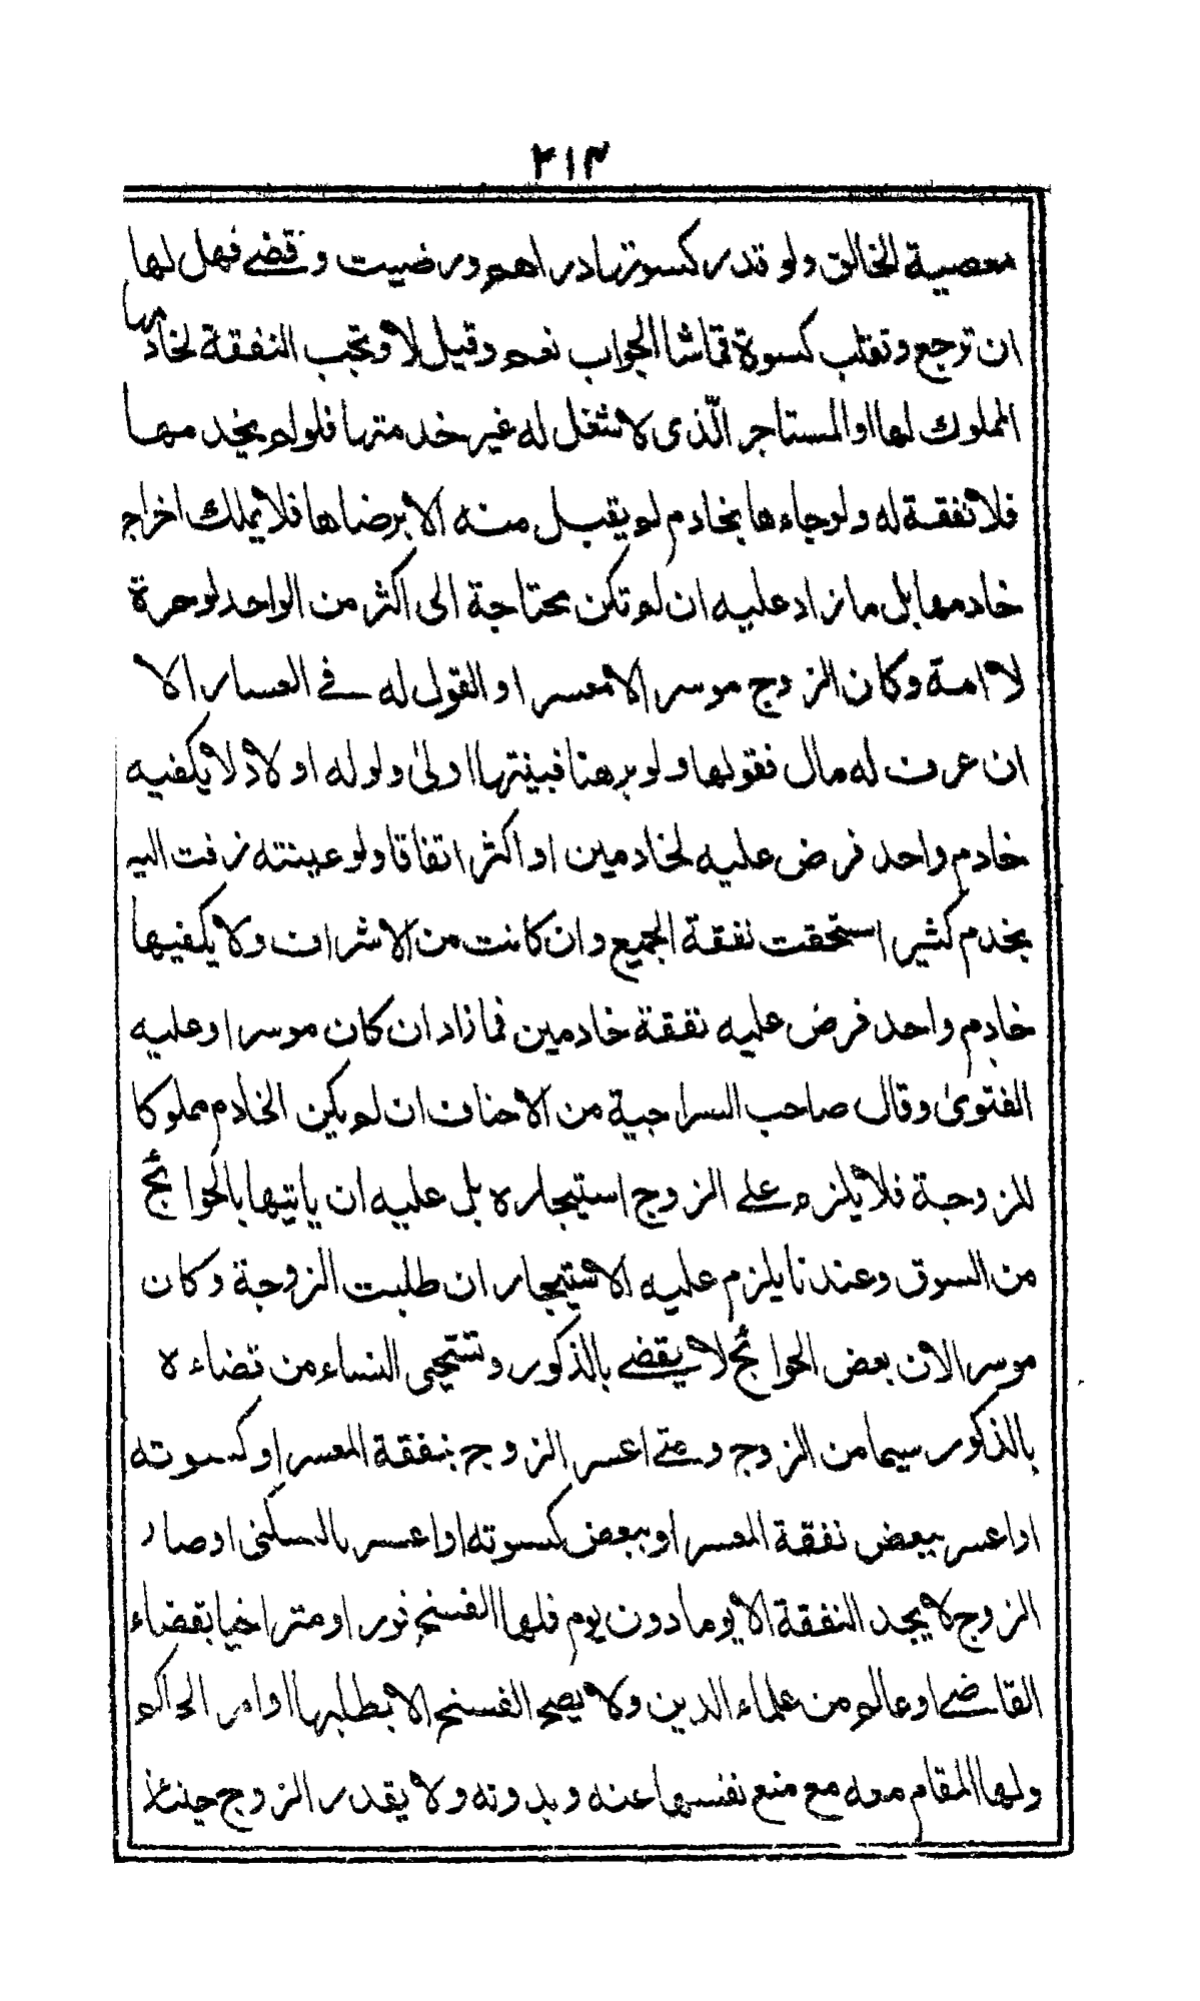 ٢١٣
معصية الخالق ولو قدر كسوتها دراهم ورضيت وقضى فهل لها
ان ترجع وتطلب كسوة قماشا الجواب نعم وقيل لا وتجب النفقة لخادمها
المملوك لها او المستاجر الّذى لا شغل له غير خدمتها فلو لم يخدمها
فلا نفقة له ولو جاءها بخادم لم يقبل منه الا برضاها فلا يملك اخراج
خادمها بل ما زاد عليه ان لم تكن محتاجة الى اكثر من الواحد لو حرة
لا امة وكان الزوج موسرا لا معسرا و القول له فى العسار الا
ان عرف له مال فقولها و لو برهنا فبينتها اولىٰ ولو له اولاد لا يكفيه
خادم واحد فرض عليه لخادمين او اكثر اتفاقا ولو غينته زفت اليه
بخدم كثير استحقت نفقة الجميع وان كانت من الاشراف ولا يكفيها
خادم واحد فرض عليه نفقة خادمين فما زاد ان كان موسرا وعليه
الفتوىٰ وقال صاحب السراجية من الاحناف ان لم يكن الخادم مملوكا
للزوجة فلا يلزم على الزوج استيجاره بل عليه ان ياتيها بالحوائج
من السوق وعندنا يلزم عليه الاستيجار ان طلبت الزوجة وكان
موسرا لان بعض الحوائج لا يقضى بالذكور وتستحيى النساء من قضاءه
بالذكور سيما من الزوج ومتى اعسر الزوج بنفقة المعسر او كسوته
او اعسر ببعض نفقة المعسر او ببعض كسوته او اعسر بالسكنى او صار
الزوج لا يجد النفقة الا يوما دون يوم فلها الفسخ فورا ومتراخيا بقضاء
القاضى او عالم من علماء الدين ولا يصح الفسخ الا بطلبها او امر الحاكم
ولها المقام معه مع منع نفسها عنه و بدونه ولا يقدر الزوج حينئذ